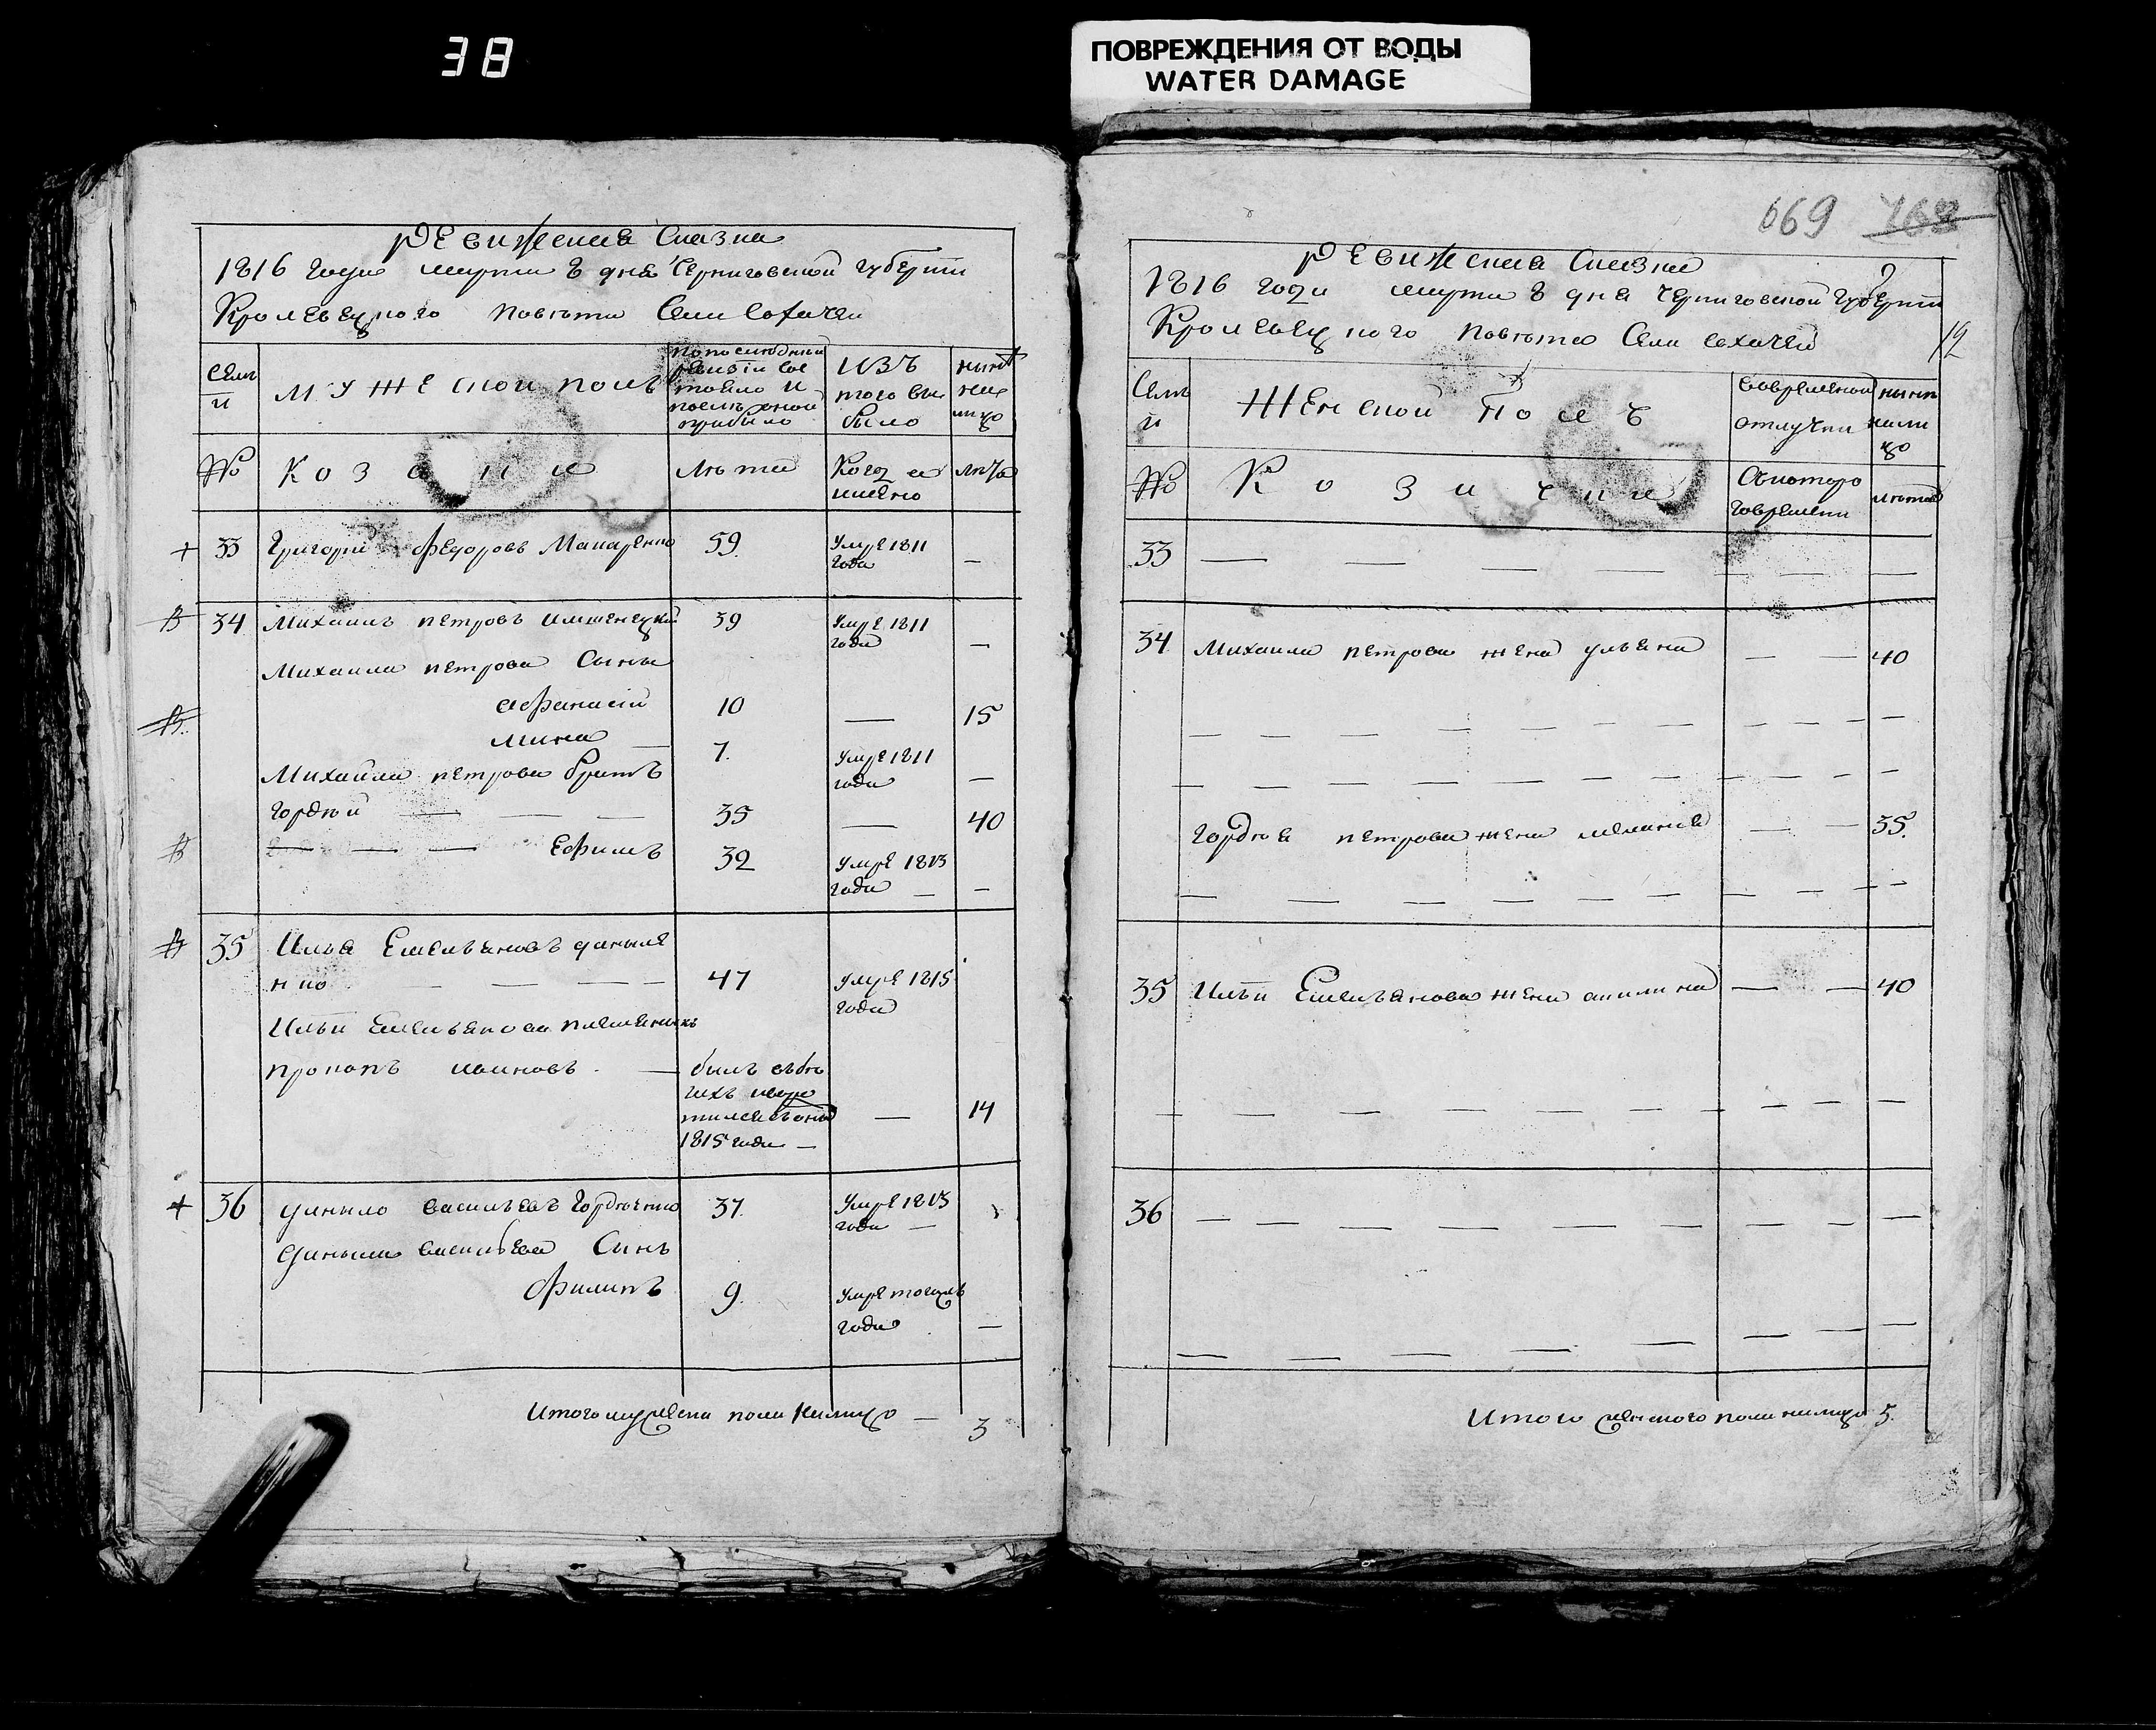 38
ПОВРЕЖДЕНИЯ ОТ ВОДЫ
WATER DAMAGE
Ревижская Сказка
1816 года марта 8 дня Черниговской губернии
Кролевецкого повета Села Сохачей
Семьи
Мужеской полъ
по последней ревизіи состояло и после оной прибыло
Изъ того выбыло
ныне на лицо
№
Козаки
Лета
Когда именно
лета
33 Григорій Федоровъ Макаренко 59. умре 1811 года —
34 Михаилъ петровъ 39 умре 1811 года —
Михаила петрова Сыны
Афанасій 10 — 15
Мина — 7. умре 1811 года —
Михайла петрова братъ
гордѣй — — — 35 — 40
— — — Ефимъ 32 умре 1813 года — —
35 Илья Емельяновъ даниле
нко — — — — 47 умре 1815 года
Ильи Емельянова племяникъ
прокопъ ивановъ. — былъ въбегахъ
1815 года — — 14
36 данило васильевъ Гордиенко 37. умре 1813 года —
данила васильева Сынъ
Филипъ 9. умре тогожъ года —
Итого мужеска пола налицо — 3
669 768
Ревижская Сказка
1816 года марта 8 дня черниговской губерніи
12
Кролевецкого повета Села сохачей
Семьи
Женской полъ
Вовременной отлучки
ныне налицо
№
Козачки
Скоторого времени
лета
33 — — — — — — —
34 Михаила петрова жена ульяна — — 40
— — — — — — — — — —
— — — — — — — — — — —
гордея петрова жена меланія — — 35.
— — — — — — — — — —
35 Ильи Емельянова жена акилина — — 40
— — — — — — — — — —
36 — — — — — — — — —
— — — — — — — —
Итого женского пола налицо 5.